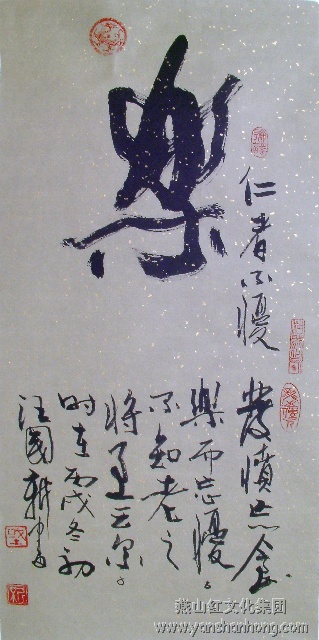 樂
仁者不懮
發憤忘食
樂而忘懮
不知老之
將至云爾
時在丙戌冬初
汪國耕書
燕山红文化集团
www.yanshanhong.com